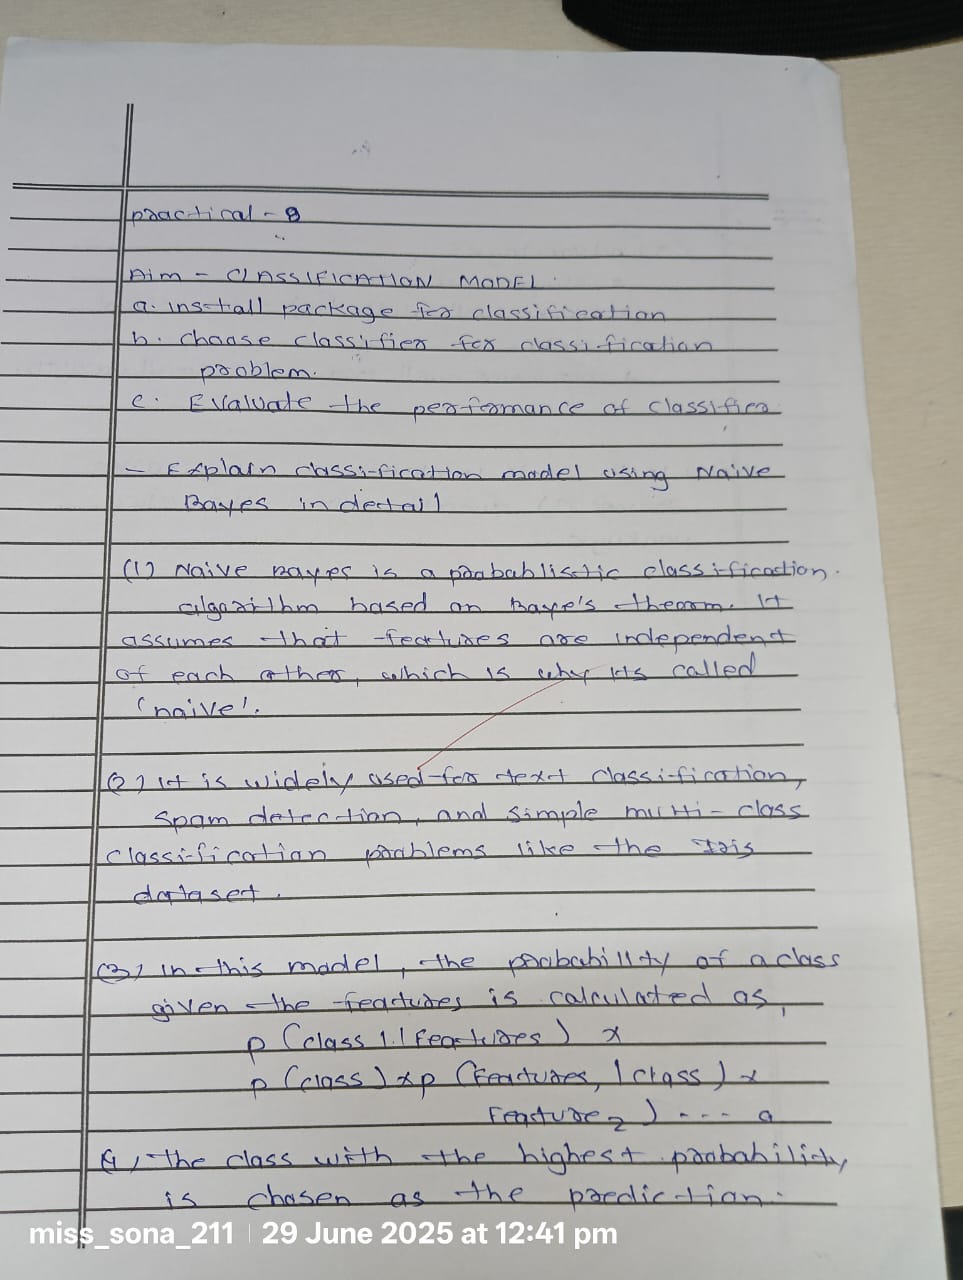 practical - 9
Aim - CLASSIFICATION MODEL
a. install package for classification
b. choose classifier for classification
problem.
c. Evaluate the performance of classifier
- Explain classification model using Naive
Bayes in detail
(1) Naive Bayes is a probablistic classification
algorithm based on Baye's theorm. It
assumes that features are independent
of each other, which is why its called
'naive'.
(2) It is widely used for text classification,
spam detection, and simple multi-class
classification problems like the Iris
dataset.
(3) In this model, the probability of a class
given the features is calculated as,
p (class 1.1 features) x
p (class) x p (features, | class) x
Feature2) --- a
4, the class with the highest probability
is chosen as the prediction.
miss_sona_211 | 29 June 2025 at 12:41 pm